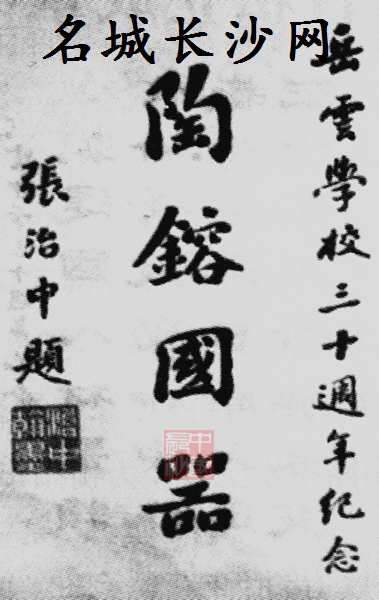 名城长沙网
岳雲學校三十週年紀念
陶鎔國器
張治中題